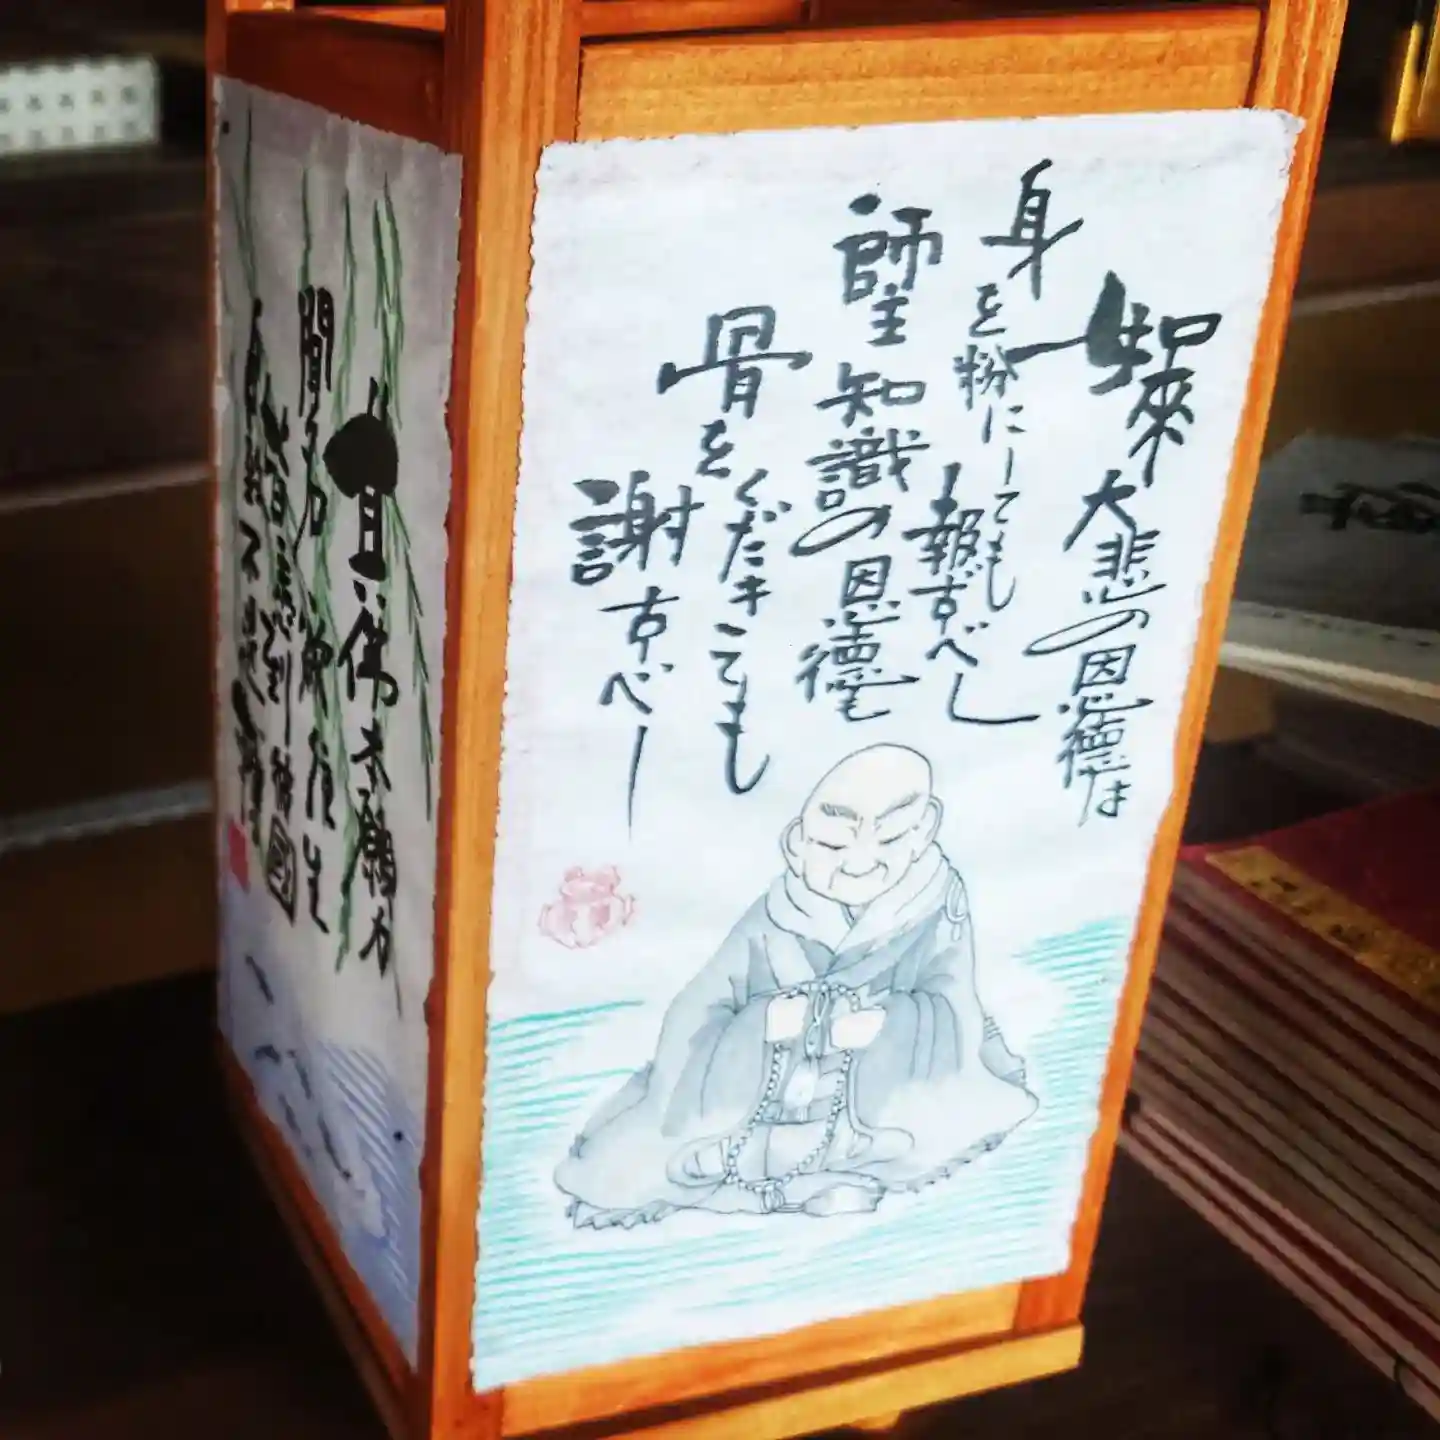 如來大悲の恩德は
身を粉にしても
報ずべし
師主知識の恩德も
骨をくだきても
謝すべし
其佛本願力
聞名欲往生
皆悉到彼國
自致不退轉